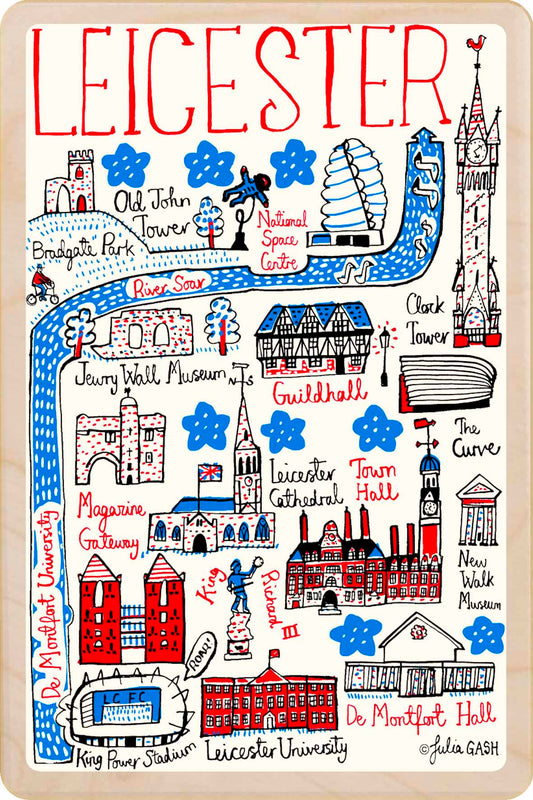 LEICESTER
Old John
Tower
National
Space
Centre
Bradgate Park
River Soar
Clock
Tower
Jewry Wall Museum
N S
Guildhall
The
Curve
Magazine
Gateway
Leicester
Cathedral
Town
Hall
New
Walk
Museum
De Montfort University
King
Richard
III
ROAR!
LCFC
King Power Stadium
Leicester University
De Montfort Hall
© Julia GASH